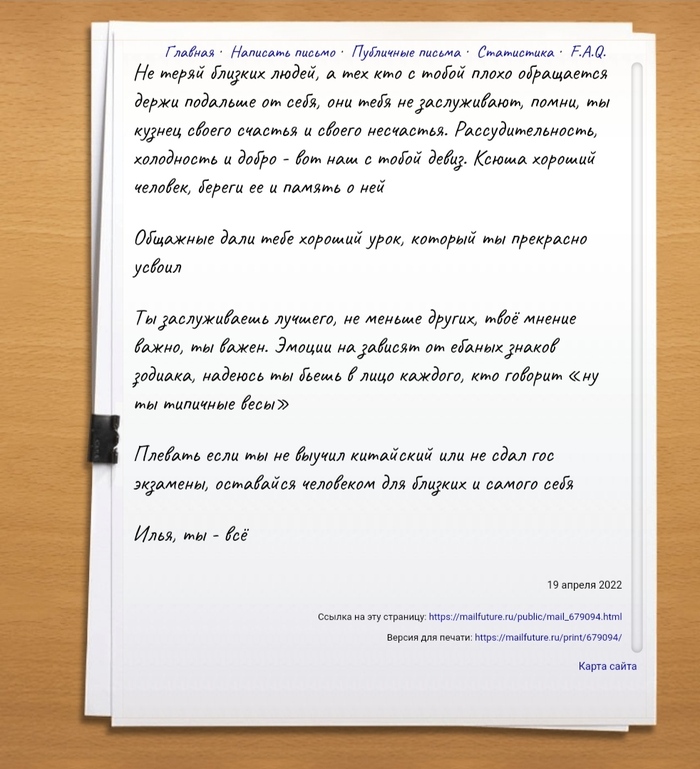 Главная · Написать письмо · Публичные письма · Статистика · F.A.Q.
Не теряй близких людей, а тех кто с тобой плохо обращается
держи подальше от себя, они тебя не заслуживают, помни, ты
кузнец своего счастья и своего несчастья. Рассудительность,
холодность и добро - вот наш с тобой девиз. Ксюша хороший
человек, береги ее и память о ней
Общажные дали тебе хороший урок, который ты прекрасно
усвоил
Ты заслуживаешь лучшего, не меньше других, твоё мнение
важно, ты важен. Эмоции на зависят от ебаных знаков
зодиака, надеюсь ты бьешь в лицо каждого, кто говорит «ну
ты типичные весы»
Плевать если ты не выучил китайский или не сдал гос
экзамены, оставайся человеком для близких и самого себя
Илья, ты - всё
19 апреля 2022
Ссылка на эту страницу: https://mailfuture.ru/public/mail_679094.html
Версия для печати: https://mailfuture.ru/print/679094/
Карта сайта